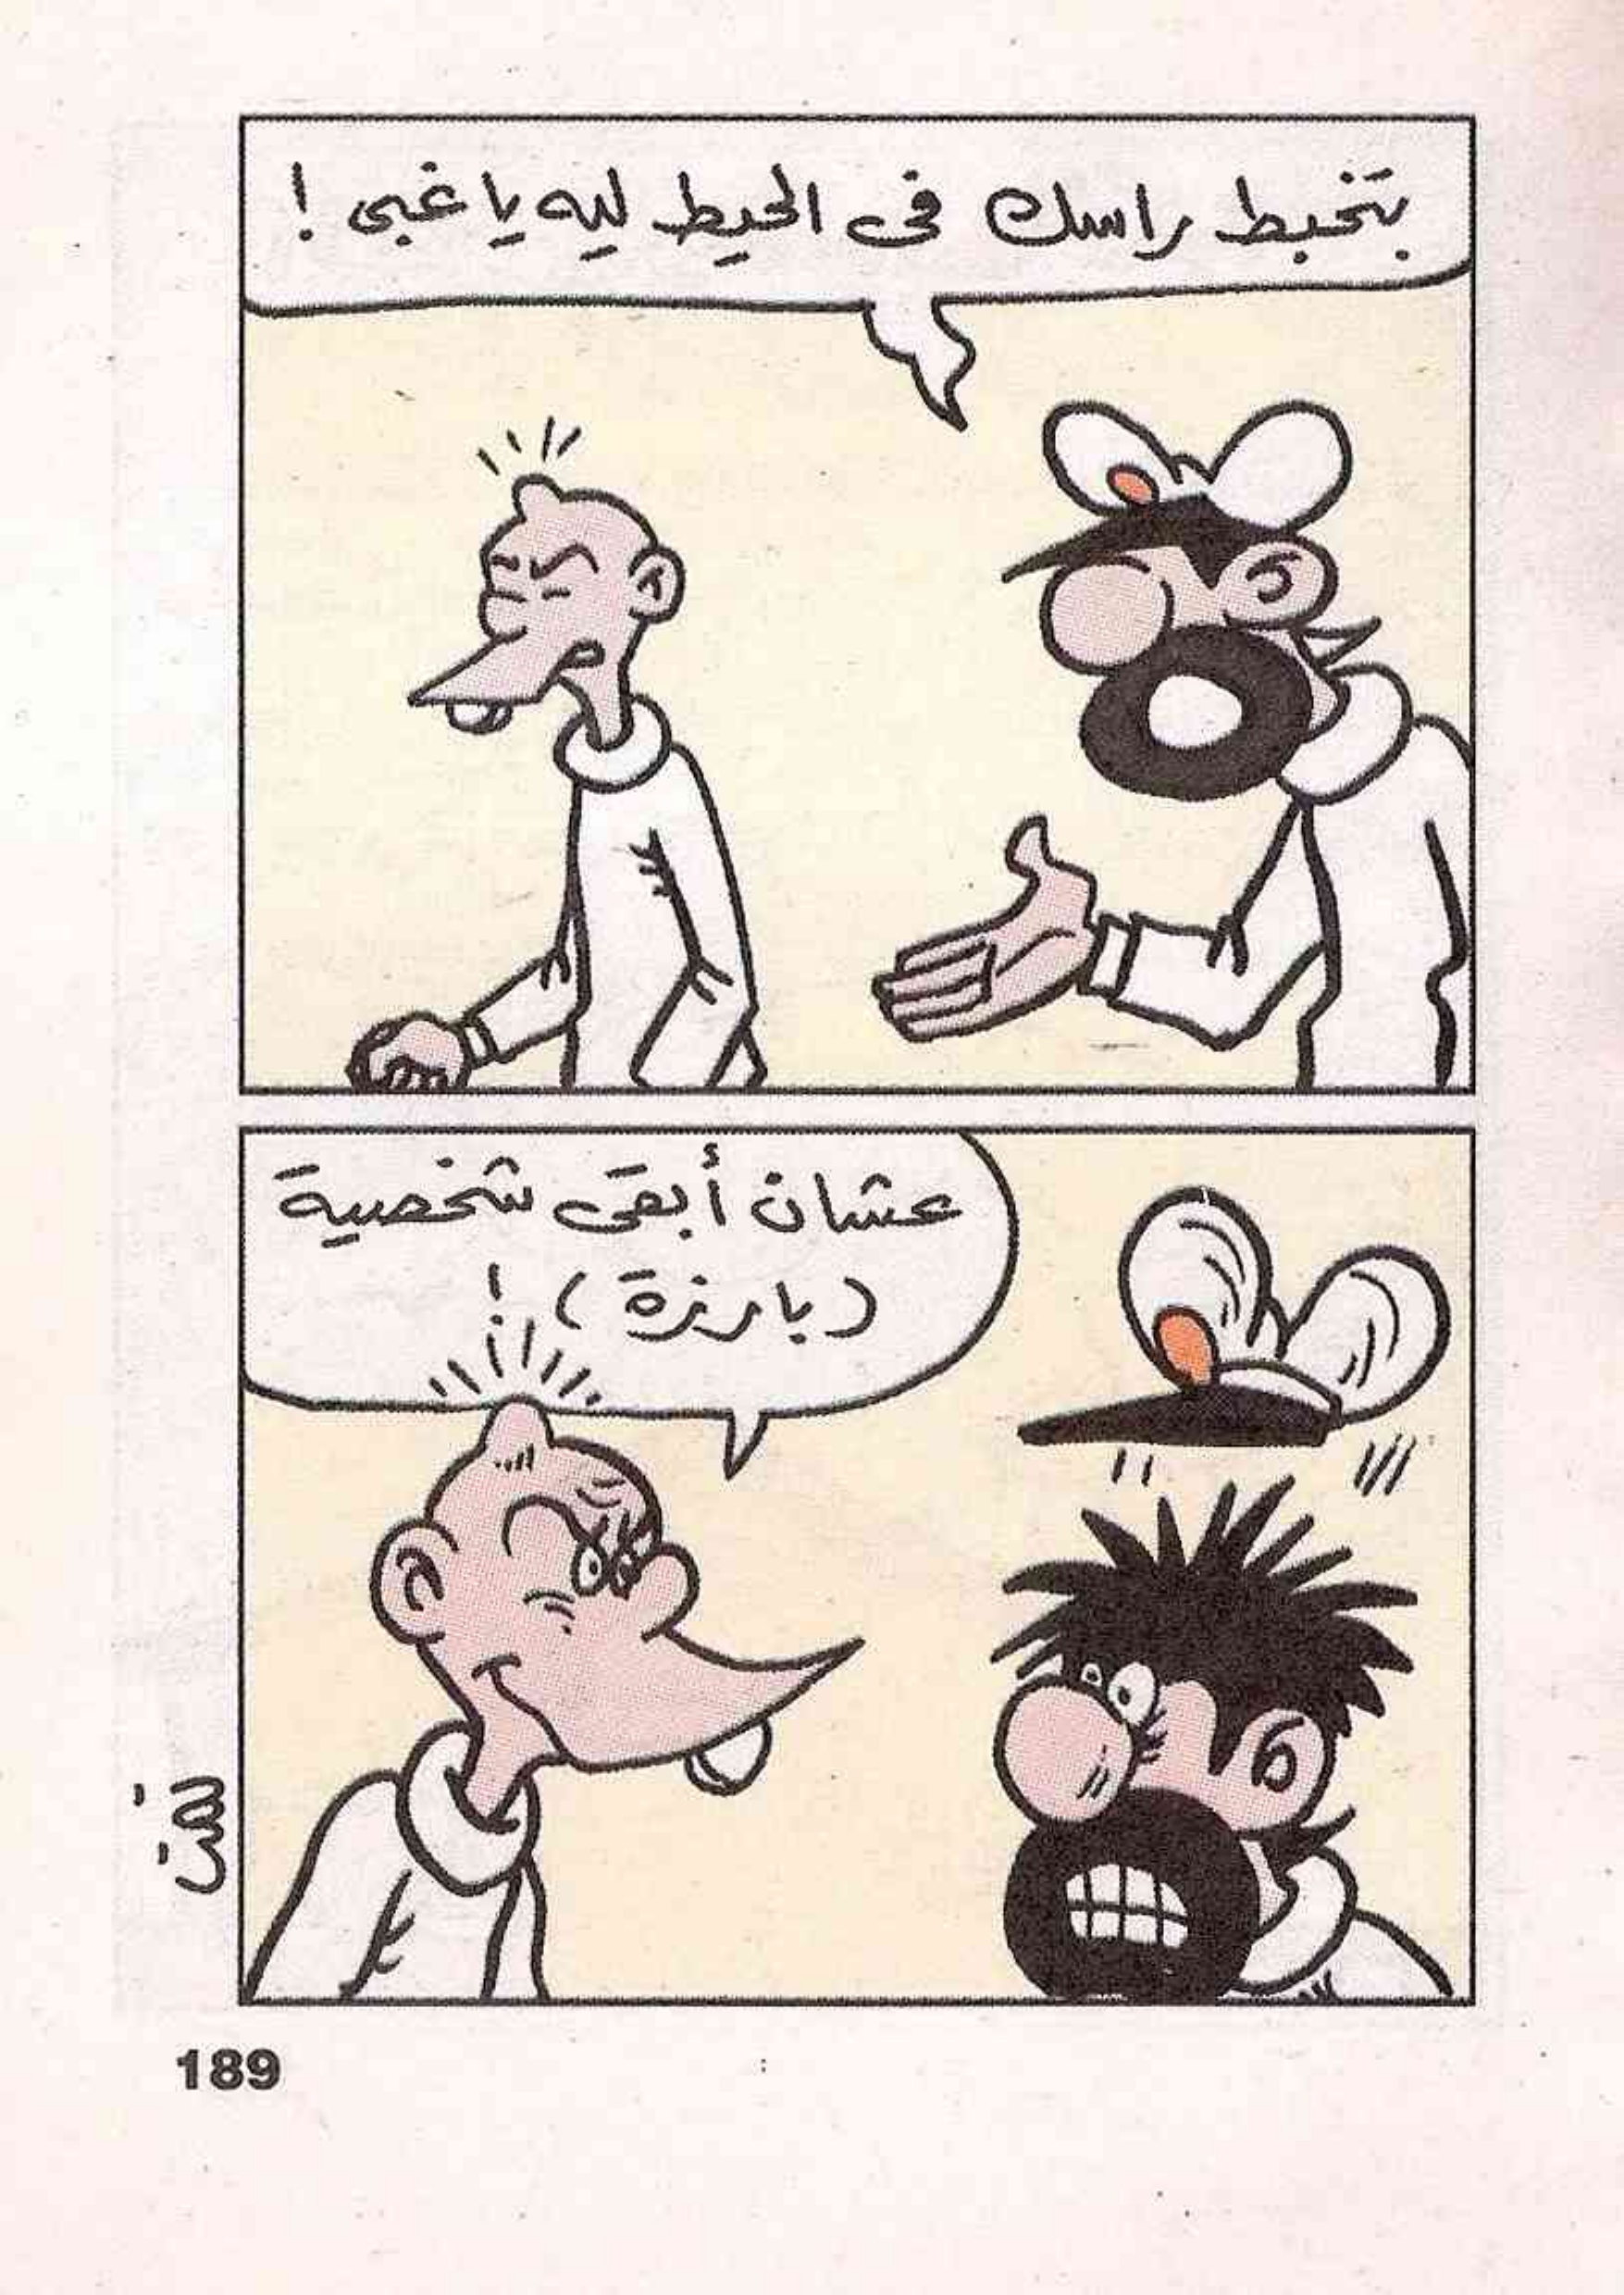 بتخبط راسك فى الحيط ليه يا غبى !
عشان أبقى شخصية
(بارزة) !
189